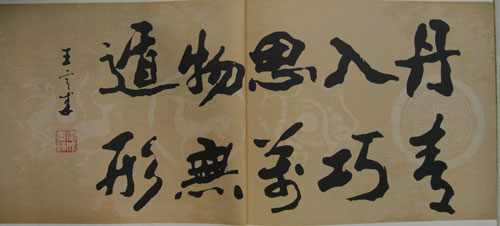 丹青
入巧
思萬
物無
遁形
王